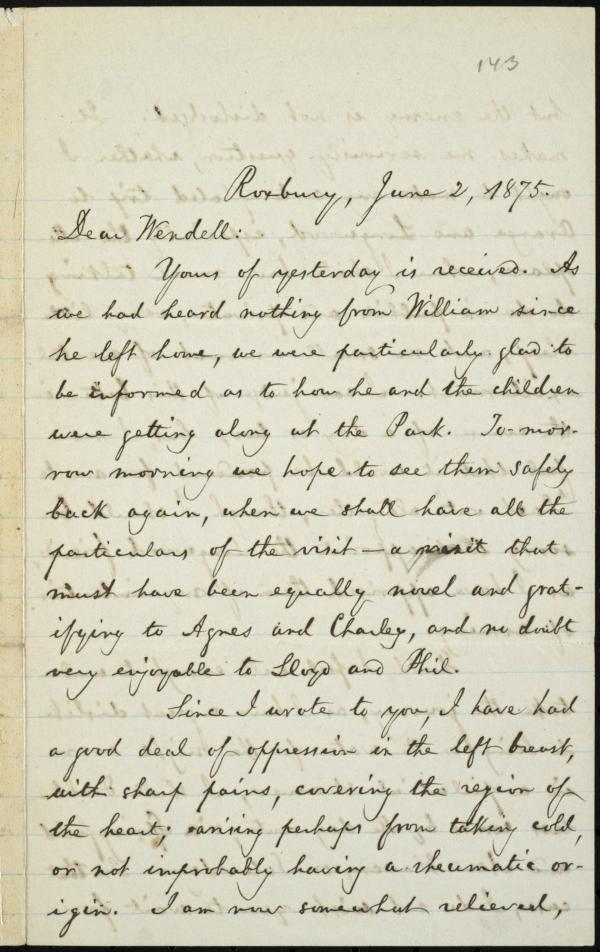 143
Roxbury, June 2, 1875.
Dear Wendell:
Yours of yesterday is received. As
we had heard nothing from William since
he left home, we were particularly glad to
be informed as to how he and the children
were getting along at the Park. To-mor-
row morning we hope to see them safely
back again, when we shall have all the
particulars of the visit—a visit that
must have been equally novel and grat-
ifying to Agnes and Charley, and no doubt
very enjoyable to Lloyd and Phil.
Since I wrote to you, I have had
a good deal of oppression in the left breast,
with sharp pains, covering the region of
the heart; arising perhaps from taking cold,
or not improbably having a rheumatic or-
igin. I am now somewhat relieved,